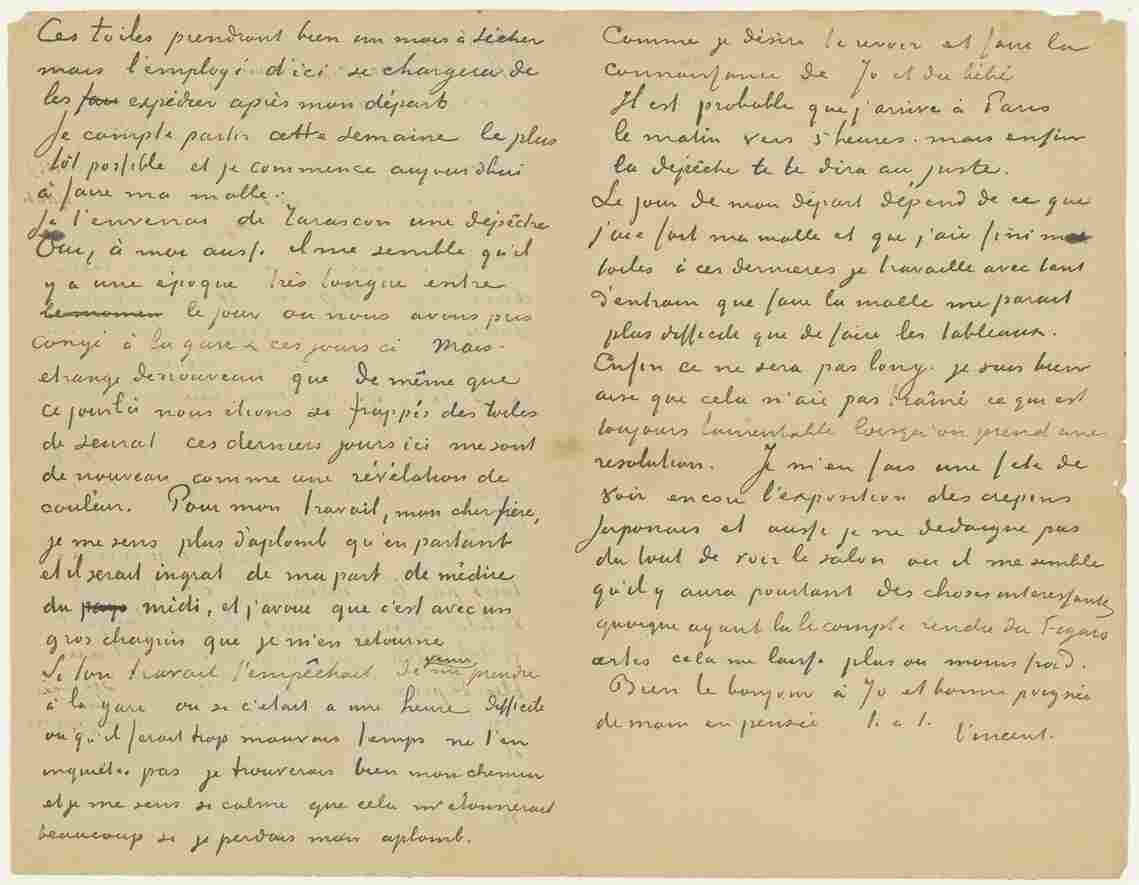 Ces toiles prendront bien un mois à sécher
mais l'employé d'ici se chargera de
les fair expédier après mon départ
Je compte partir cette semaine le plus
tôt possible et je commence aujourd'hui
à faire ma malle.
Je t'enverrai de Tarascon une dépêche
Oui, à moi aussi il me semble qu'il
y a une époque très longue entre
le momen le jour où nous avons pris
congé à la gare & ces jours ci Mais
etrange de nouveau que de même que
ce jour là nous étions si frappés des toiles
de Seurat ces derniers jours ici me sont
de nouveau comme une révélation de
couleur. Pour mon travail, mon cher frère,
je me sens plus d'aplomb qu'en partant
et il serait ingrat de ma part de médire
du pays midi, et j'avoue que c'est avec un
gros chagrin que je m'en retourne
Si ton travail t'empêchait de me venir prendre
à la gare ou si c'etait a une heure difficile
ou qu'il ferait trop mauvais temps ne t'en
inquiète pas je trouverais bien mon chemin
et je me sens si calme que cela m'étonnerait
beaucoup si je perdais mon aplomb.
Comme je désire te revoir et faire la
connaissance de Jo et du bébé
Il est probable que j'arrive à Paris
le matin vers 5 heures. mais enfin
la dépêche te le dira au juste.
Le jour de mon départ dépend de ce que
j'aie fait ma malle et que j'aie fini mes
toiles à ces dernieres je travaille avec tant
d'entrain que faire la malle me parait
plus difficile que de faire les tableaux.
Enfin ce ne sera pas long. je suis bien
aise que cela n'aie pas traîné ce qui est
toujours lamentable lorsqu'on prend une
resolution. Je m'en fais une fete de
voir encore l'exposition des crepons
Japonais et aussi je ne dedaigne pas
du tout de voir le salon ou il me semble
qu'il y aura pourtant des choses interessantes
quoique ayant lu le compte rendu du Figaro
certes cela me laisse plus ou moins froid.
Bien le bonjour à Jo et bonne poignée
de main en pensée t. à t.
Vincent.